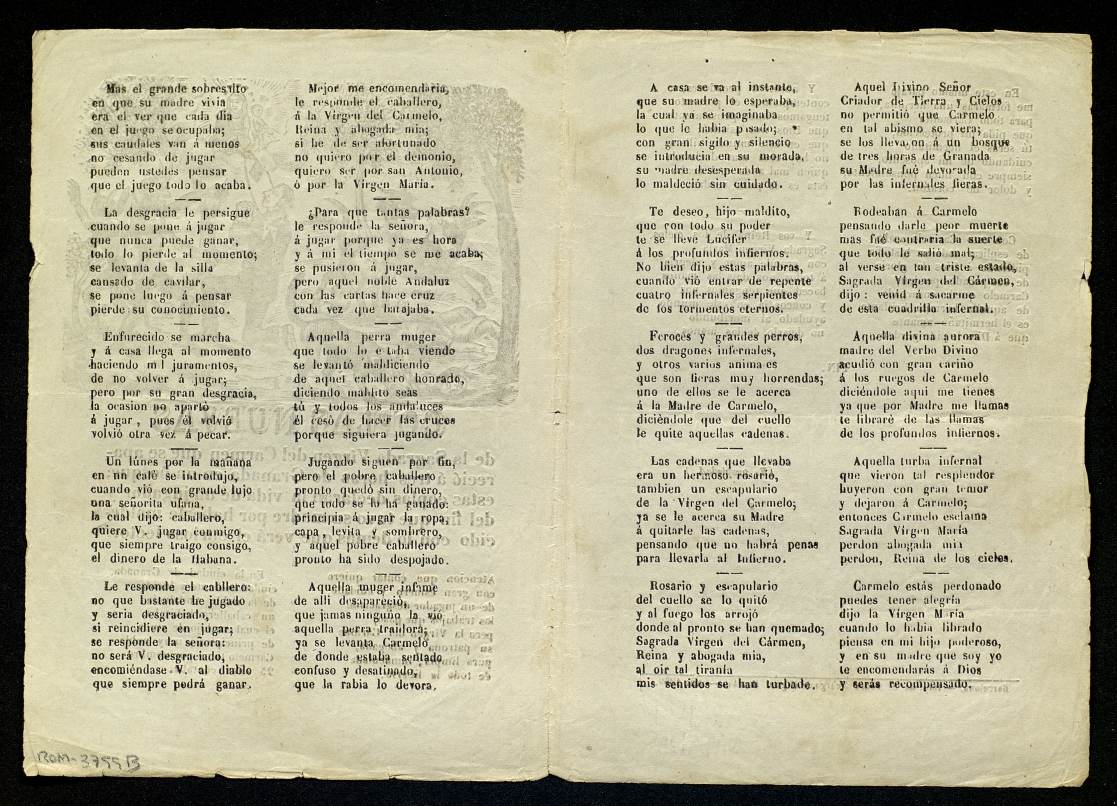 Mas el grande sobresalto
en que su madre vivia
era el ver que cada dia
en el juego se ocupaba;
sus caudales van á menos
no cesando de jugar
pueden ustedes pensar
que el juego todo lo acaba.
La desgracia le persigue
cuando se pone á jugar
que nunca puede ganar,
todo lo pierde al momento;
se levanta de la silla
cansado de cavilar,
se pone luego á pensar
pierde su conocimiento.
Enfurecido se marcha
y á casa llega al momento
haciendo mil juramentos,
de no volver á jugar;
pero por su gran desgracia,
la ocasion no apartó
á jugar, pues él volvió
volvió otra vez á pecar.
Un lúnes por la mañana
en un café se introdujo,
cuando vió con grande lujo
una señorita ufana,
la cual dijo: caballero,
quiere V. jugar conmigo,
que siempre traigo consigo,
el dinero de la Habana.
Le responde el cabllero:
no que bastante he jugado
y seria desgraciado,
si reincidiere en jugar;
se responde la señora:
no será V. desgraciado,
encomiéndase V. al diablo
que siempre podrá ganar.
Mejor me encomendaria,
le responde el caballero,
á la Virgen del Carmelo,
Reina y abogada mia;
si he de ser afortunado
no quiero por el demonio,
quiero ser por san Antonio,
ó por la Virgen Maria.
¿Para que tantas palabras?
le responde la señora,
á jugar porque ya es hora
y á mi el tiempo se me acaba;
se pusieron á jugar,
pero aquel noble Andaluz
con las cartas hace cruz
cada vez que barajaba.
Aquella perra muger
que todo lo estaba viendo
se levantó maldiciendo
de aquel caballero honrado,
diciendo maldito seas
tú y todos los andaluces
él cesó de hacer las cruces
porque siguiera jugando.
Jugando siguen por fin,
pero el pobre caballero
pronto quedó sin dinero,
que todo se lo ha ganado:
principia á jugar la ropa,
capa, levita y sombrero,
y aquel pobre caballero
pronto ha sido despojado.
Aquella muger infame
de alli desapareció,
que jamas ninguün la vió
aquella perra traidora;
ya se levanta Carmelo
de donde estaba sentado
confuso y desatinado,
que la rabia lo devora.
A casa se va al instante,
que su madre lo esperaba,
la cual ya se imaginaba
lo que le habia pasado;
con gran sigilo y silencio
se introducia en su morada,
su madre desesperada
lo maldeció sin cuidado.
Te deseo, hijo maldito,
que con todo su poder
te se lleve Lucifer
á los profundos infiernos.
No bien dijo estas palabras,
cuando vió entrar de repente
cuatro infernales serpientes
de los tormentos eternos.
Feroces y grandes perros,
dos dragones infernales,
y otros varios animales
que son fieras muy horrendas;
uno de ellos se le acerca
á la Madre de Carmelo,
diciéndole que del cuello
le quite aquellas cadenas.
Las cadenas que llevaba
era un hermoso rosario,
tambien un escapulario
de la Virgen del Carmelo;
ya se le acerca su Madre
á quitarle las cadenas,
pensando que no habrá penas
para llevarla al Infierno.
Rosario y escapulario
del cuello se lo quitó
y al fuego los arrojó
donde al pronto se han quemado;
Sagrada Vírgen del Cármen,
Reina y abogada mia,
al oir tal tiranía
mis sentidos se han turbado.
Aquel Divino Señor
Criador de Tierra y Cielos
no permitió que Carmelo
en tal abismo se viera;
se los llevaron á un bosque
de tres horas de Granada
su Madre fué devorada
por las infernales fieras.
Rodeaban á Carmelo
pensando darle peor muerte
mas fué contraria la suerte
que todo le salió mal;
al verse en tan triste estado,
Sagrada Vírgen del Cármen,
dijo: venid á sacarme
de esta cuadrilla infernal.
Aquella divina aurora
madre del Verbo Divino
acudió con gran cariño
á los ruegos de Carmelo
diciéndole aqui me tienes
ya que por Madre me llamas
te libraré de las llamas
de los profundos infiernos.
Aquella turba infernal
que vieron tal resplendor
huyeron con gran temor
y dejaron á Carmelo;
entonces Carmelo esclama
Sagrada Virgen Maria
perdon abogada mia
perdon, Reina de los cielos.
Carmelo estás perdonado
puedes tener alegria
dijo la Vírgen Maria
cuando lo habia librado
piensa en mi hijo poderoso,
y en su madre que soy yo
te encomendarás á Dios
y serás recompensado.
ROM-3799B